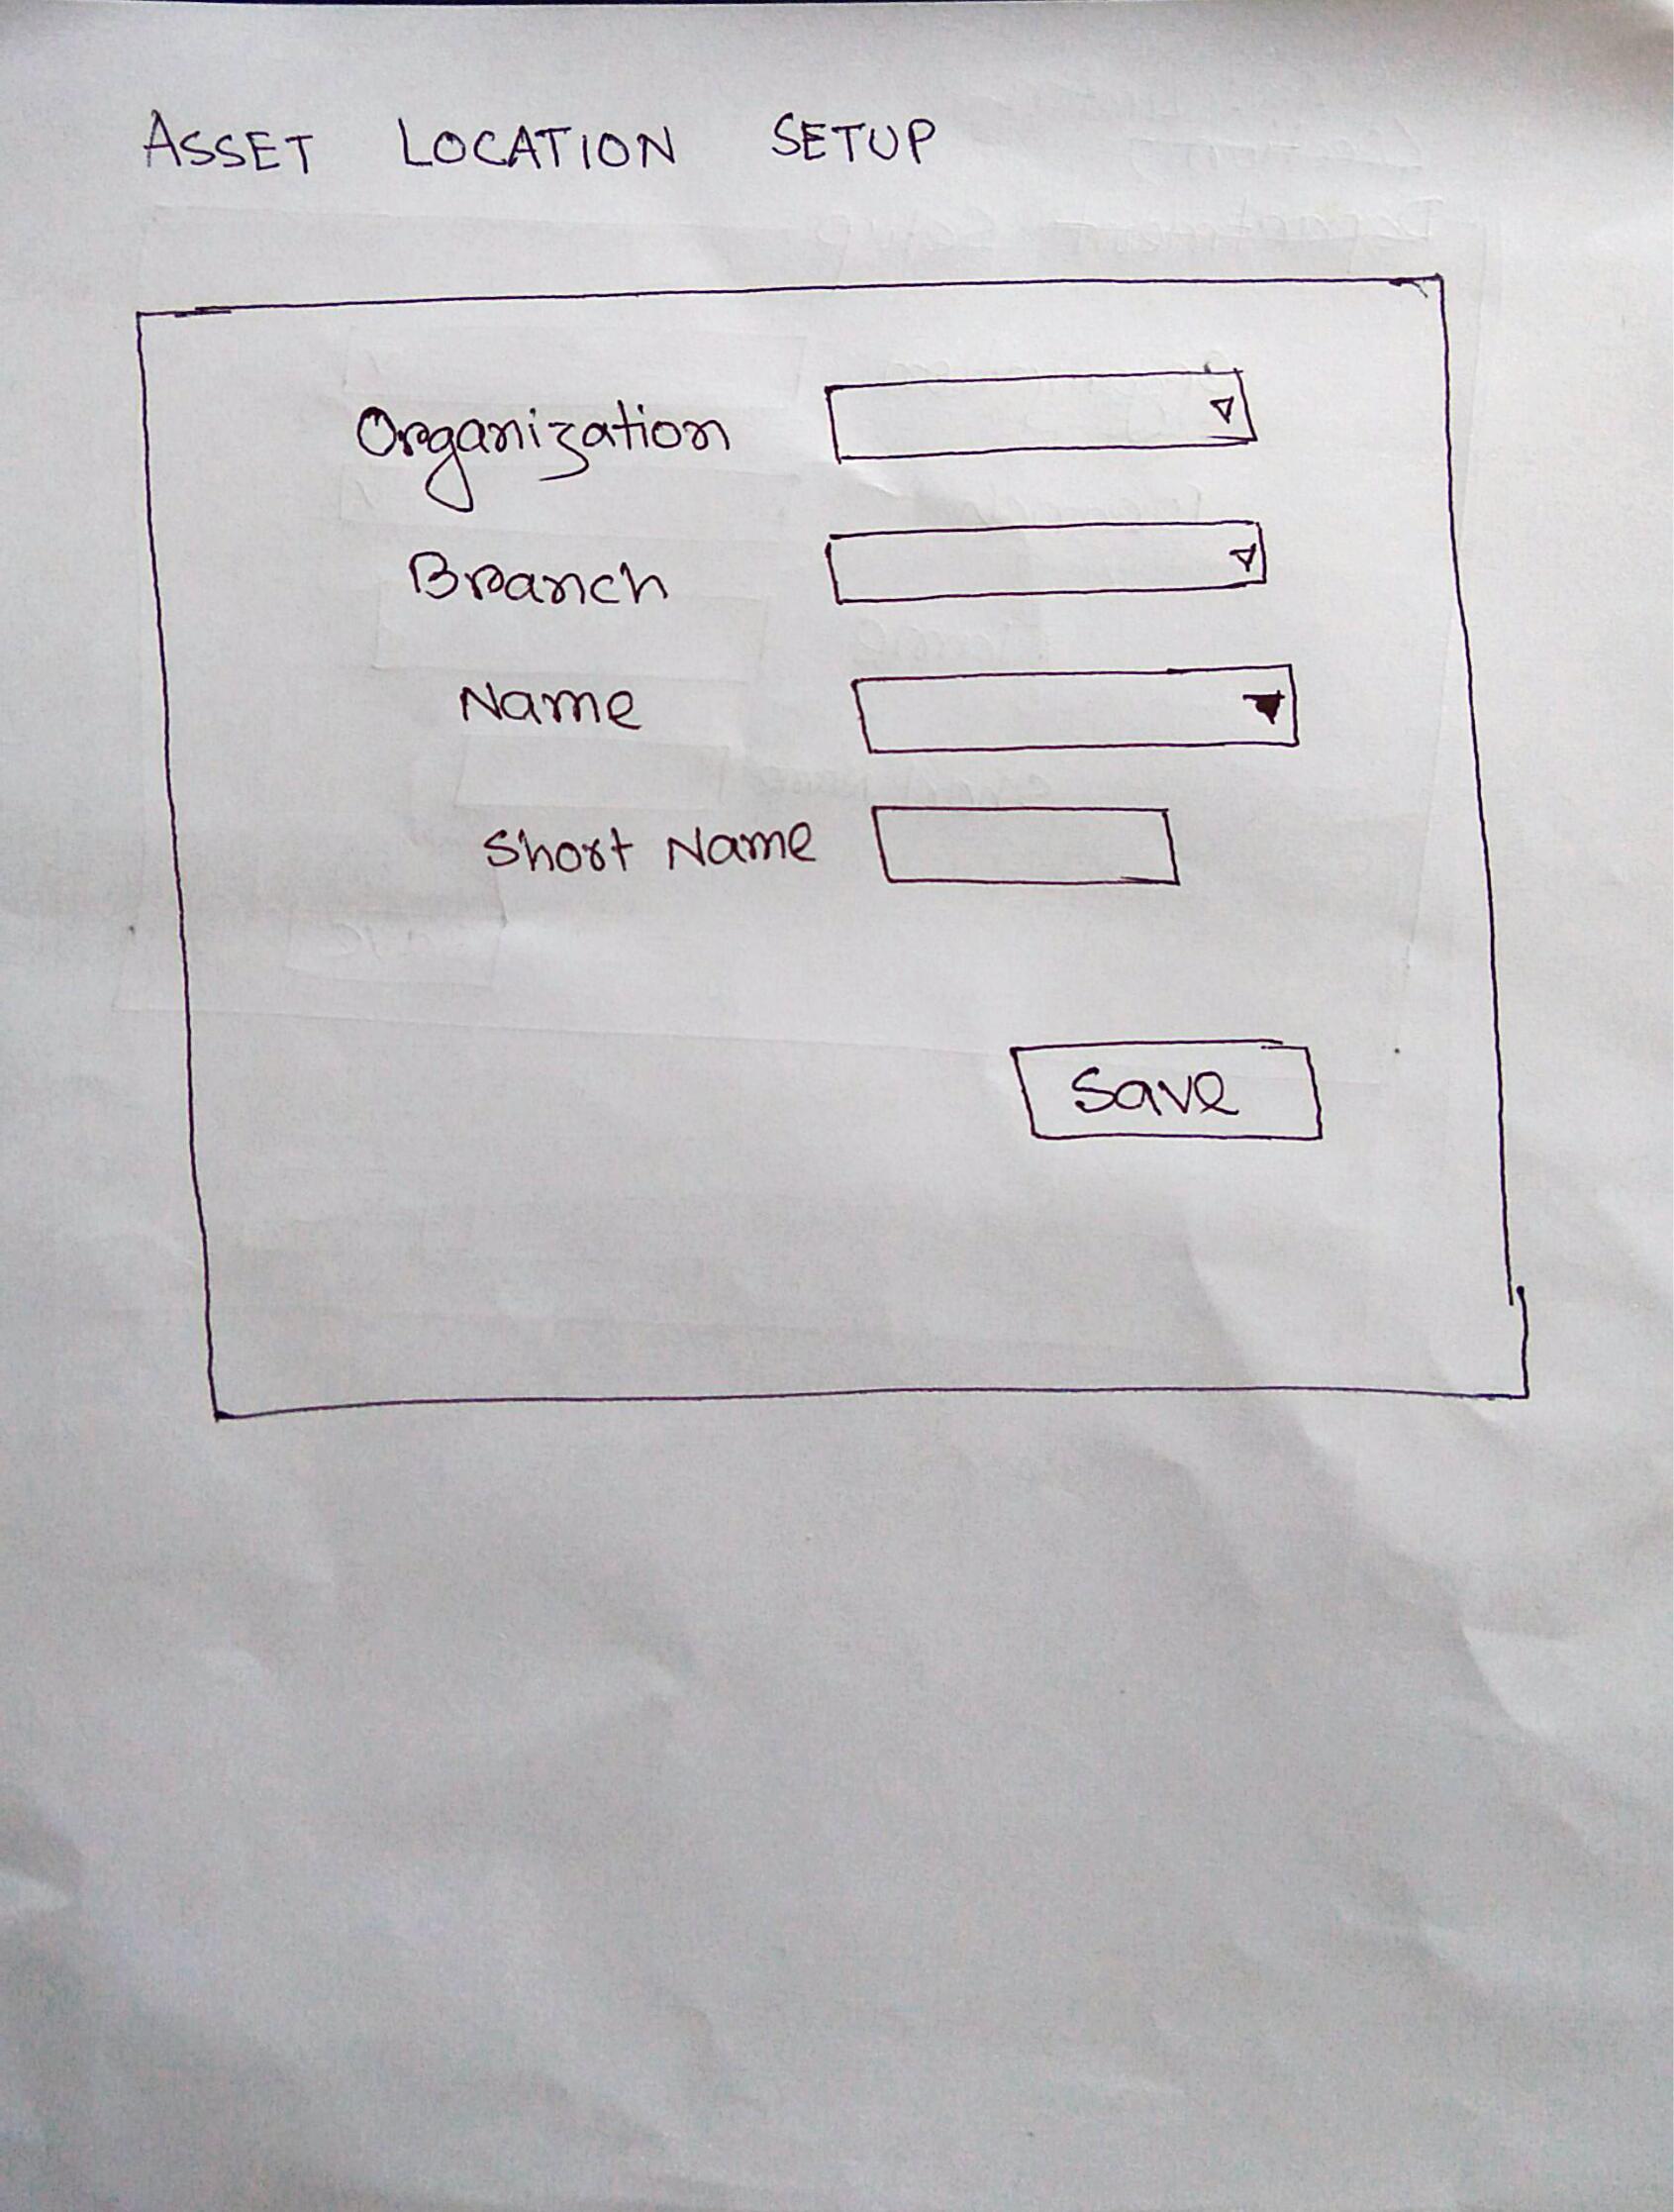 ASSET LOCATION SETUP
Organization
Branch
Name
Short Name
Save